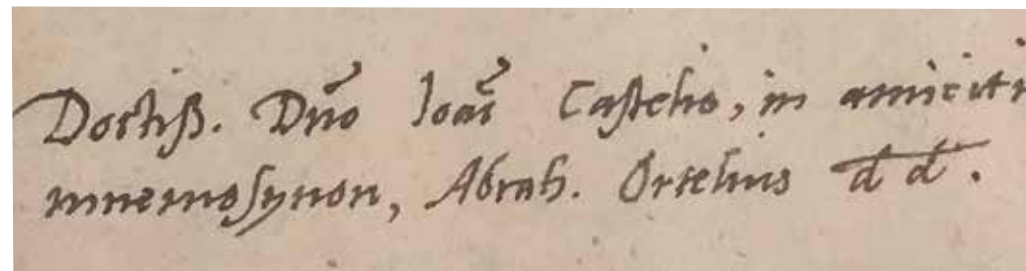 Doctiss. Dño Ioañi Castelio, in amiciti
mnemosynon, Abrah. Ortelius dd.